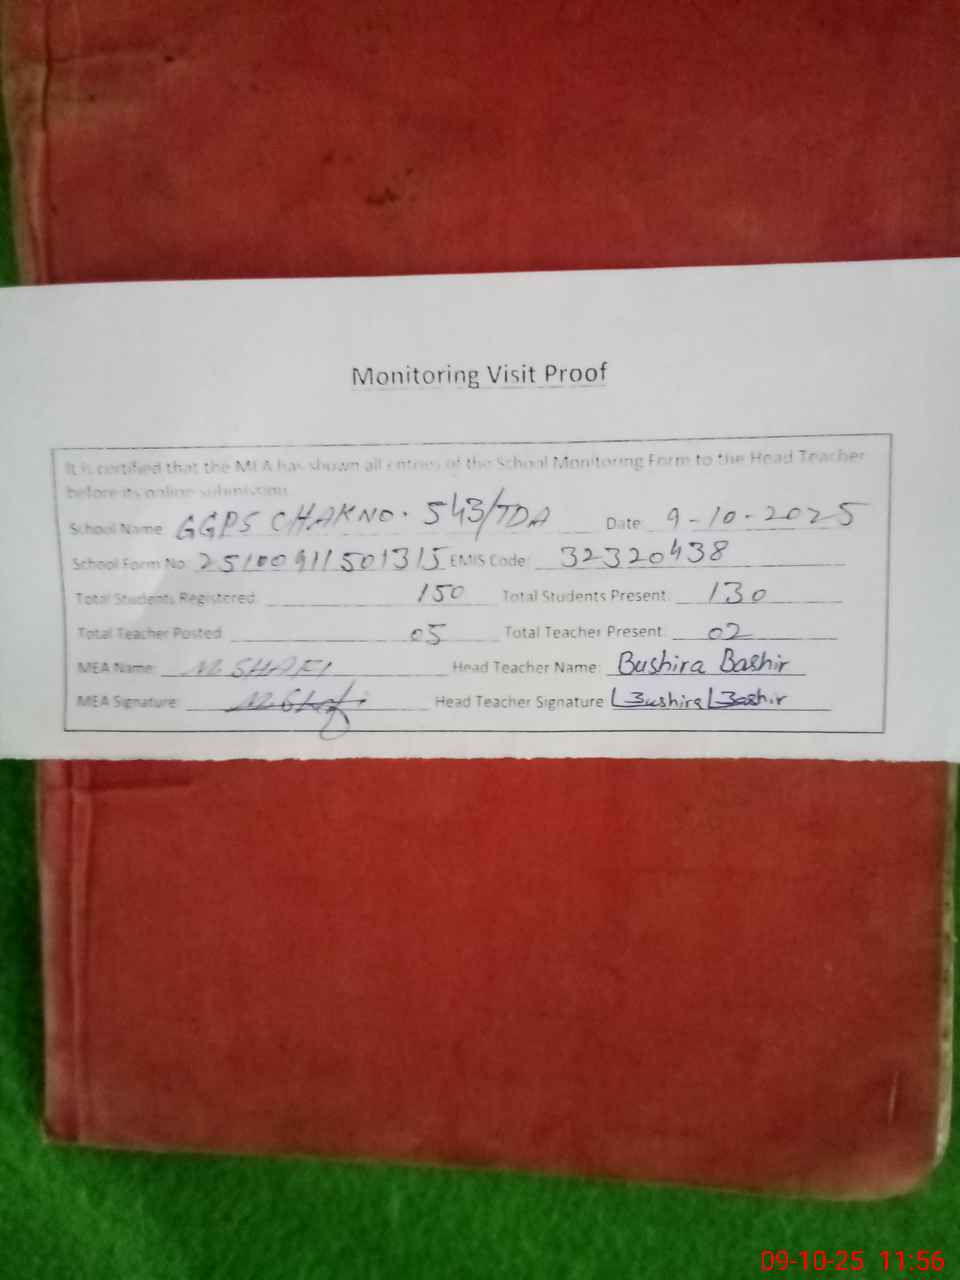 Monitoring Visit Proof
It is certified that the MEA has shown all entries of the School Monitoring Form to the Head Teacher
before its online submission.
School Name: GGPS CHAK NO. 543/TDA Date: 9-10-2025
School Form No: 25100911501315 EMIS Code: 32320438
Total Students Registered: 150 Total Students Present: 130
Total Teacher Posted 05 Total Teacher Present: 02
MEA Name: M. SHAFI Head Teacher Name: Bushira Bashir
MEA Signature: M. Shafi Head Teacher Signature Bushira Bashir
09-10-25 11:56